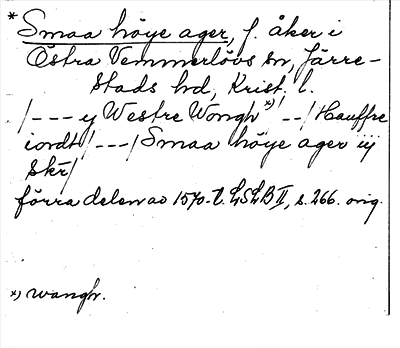 * Smaa höye ager, f. åker i
Östra Vemmerlövs sn, Järre-
stads hd, Krist. l.
/--- y Westre Wongh *) --/ Hauffre
iordt/---/ Smaa höye ager iij
Skr/
förra delen av 1570-t. LSLB II, s. 266. orig.
*) wangh.